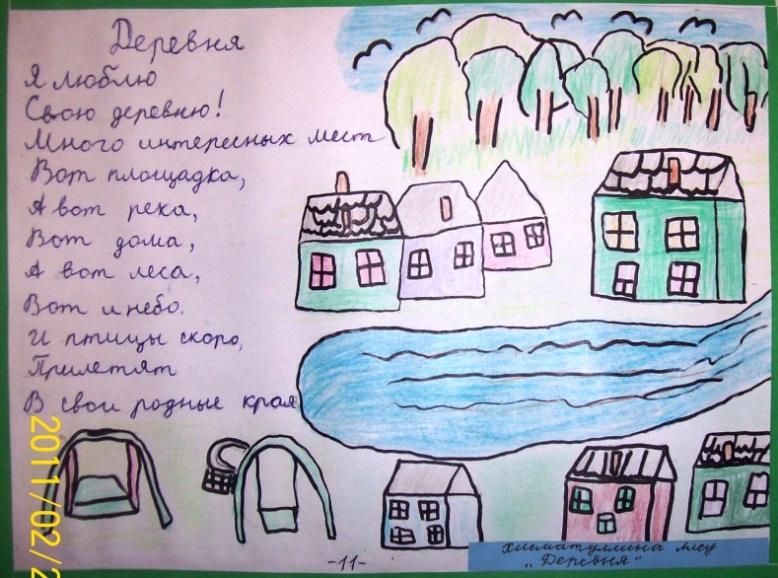 Деревня
Я люблю
Свою деревню!
Много интересных мест
Вот площадка,
А вот река,
Вот дома,
А вот леса,
Вот и небо.
И птицы скоро,
Прилетят
В свои родные края
2011/02/2
-11-
Хисматуллина
„Деревня"